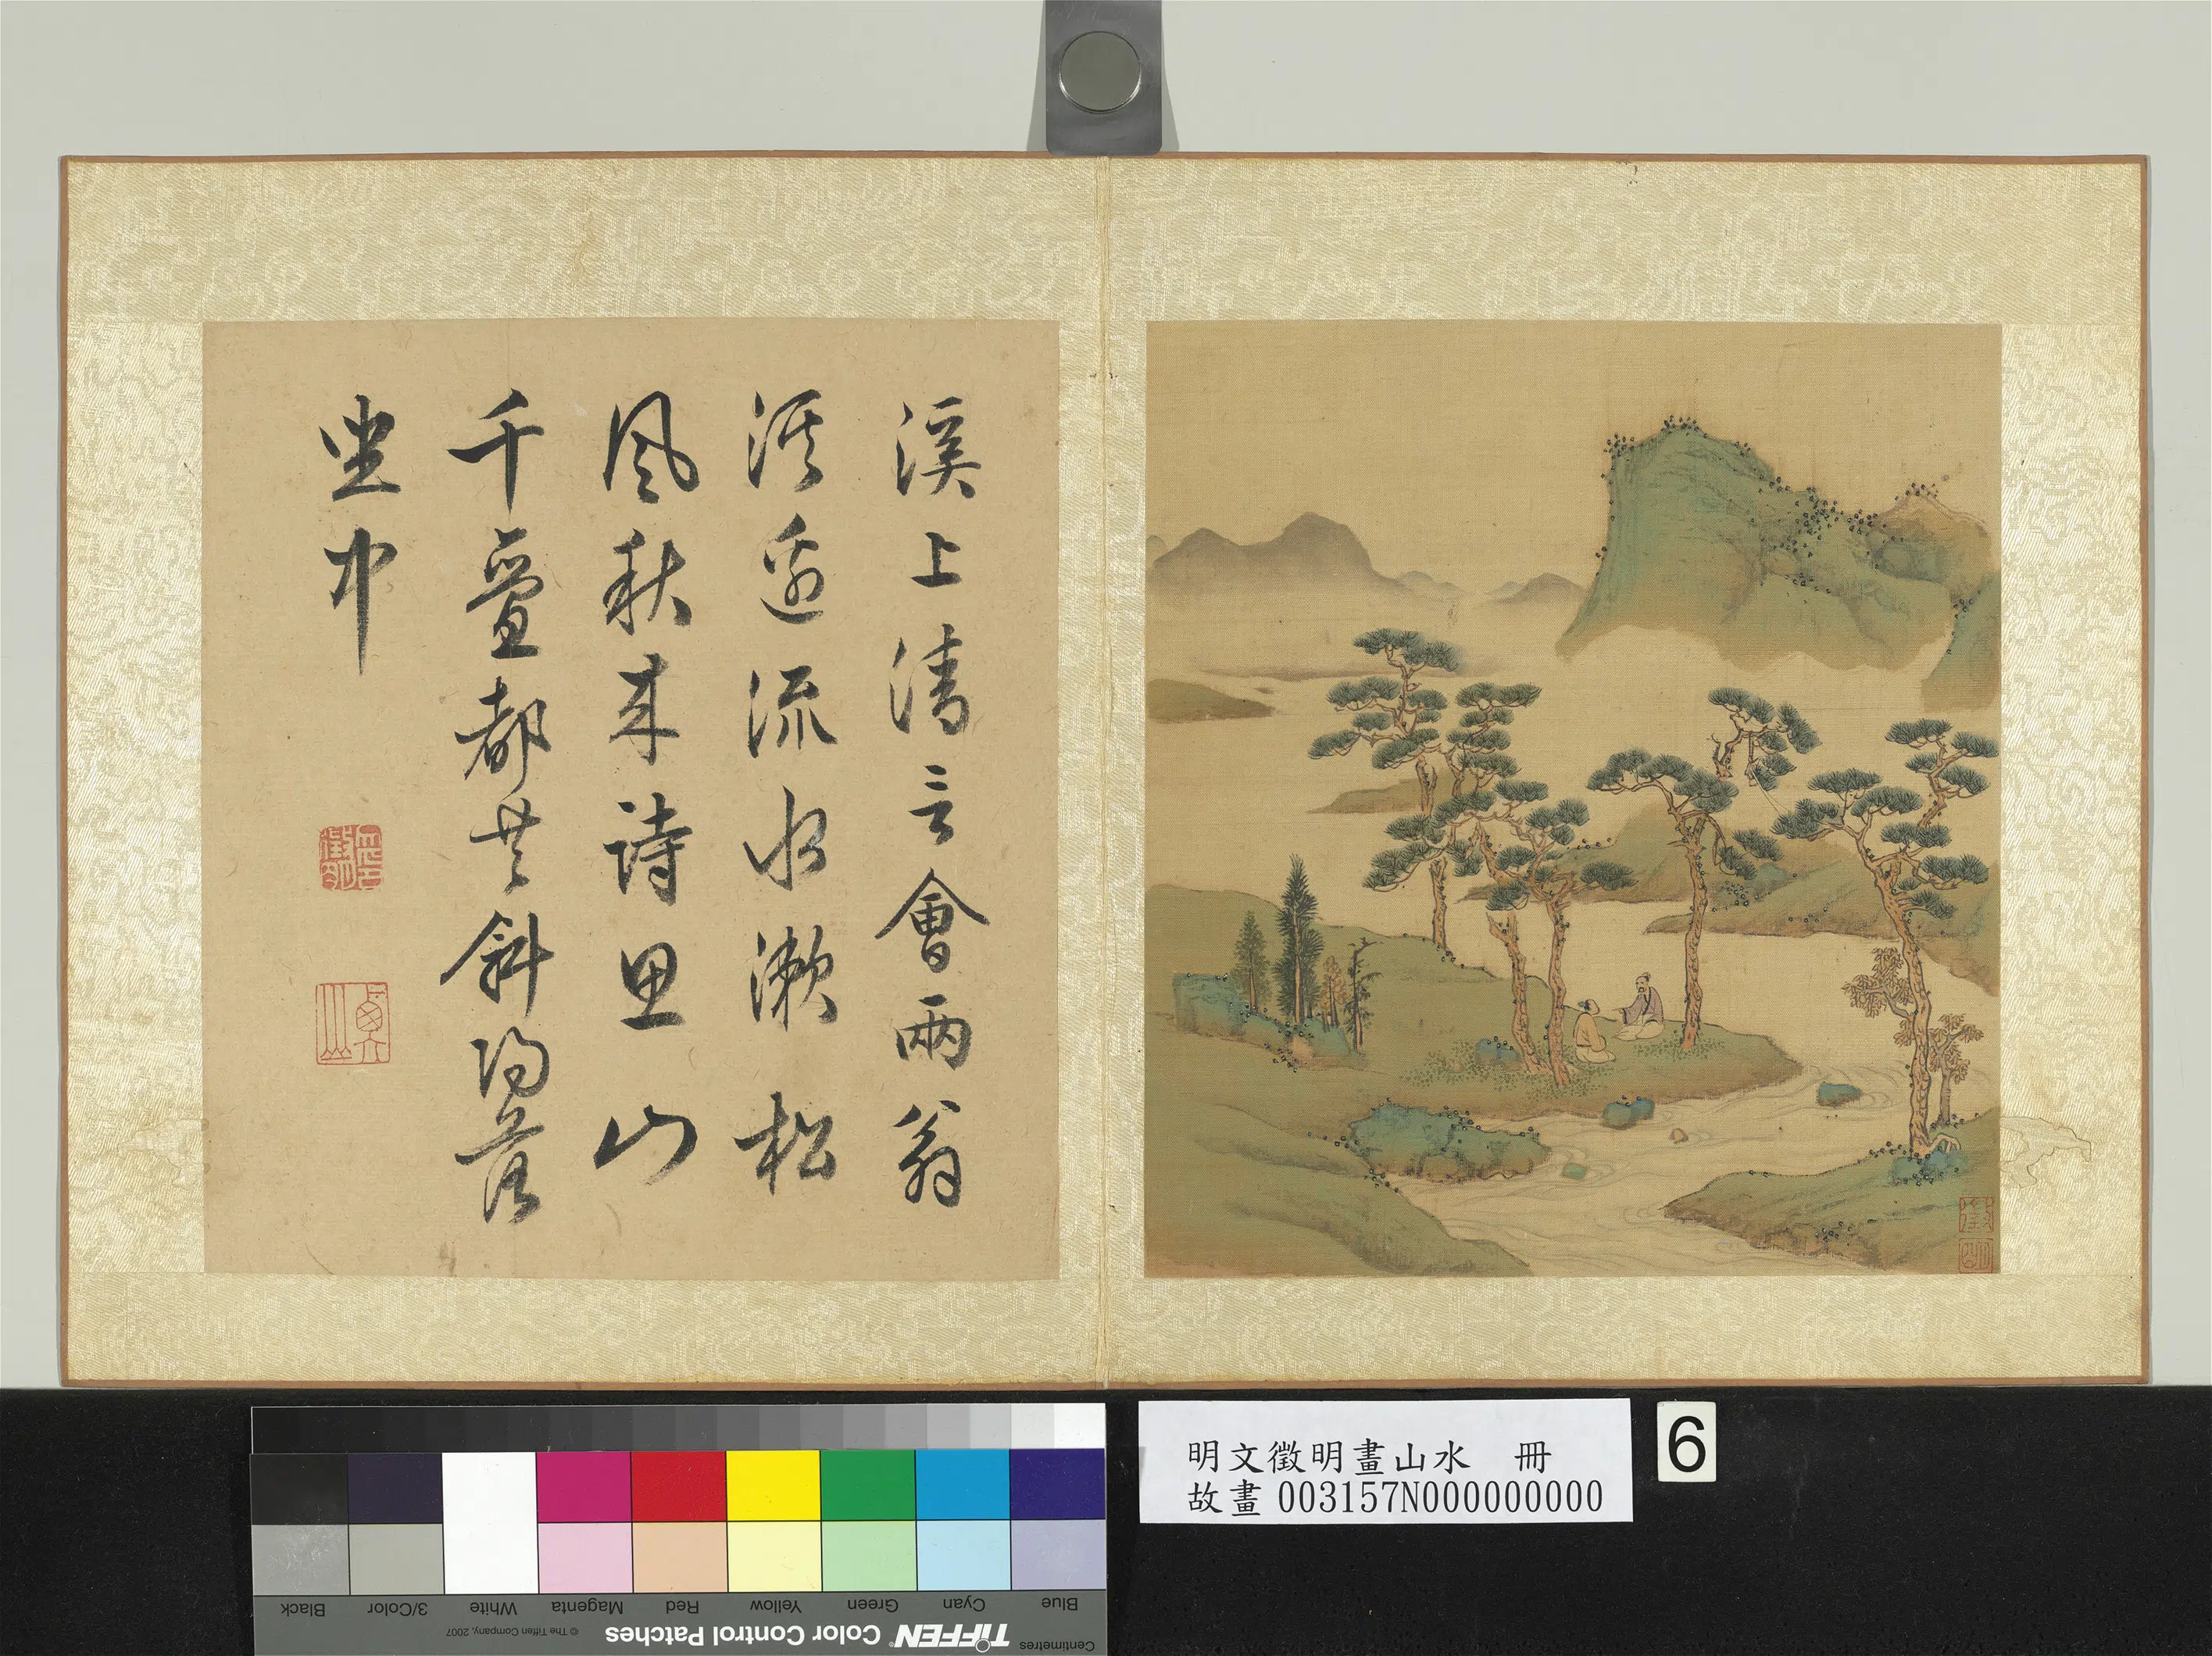 溪上清言會兩翁
溪邊流水漱松
風秋來詩思山
千疊都共斜陽落
坐中
徵
明
明文徵明畫山水 冊
故畫 003157N000000000
6
Centimetres
TIFFEN® Color Control Patches
© The Tiffen Company, 2007
Blue Cyan Green Yellow Red Magenta White 3/Color Black